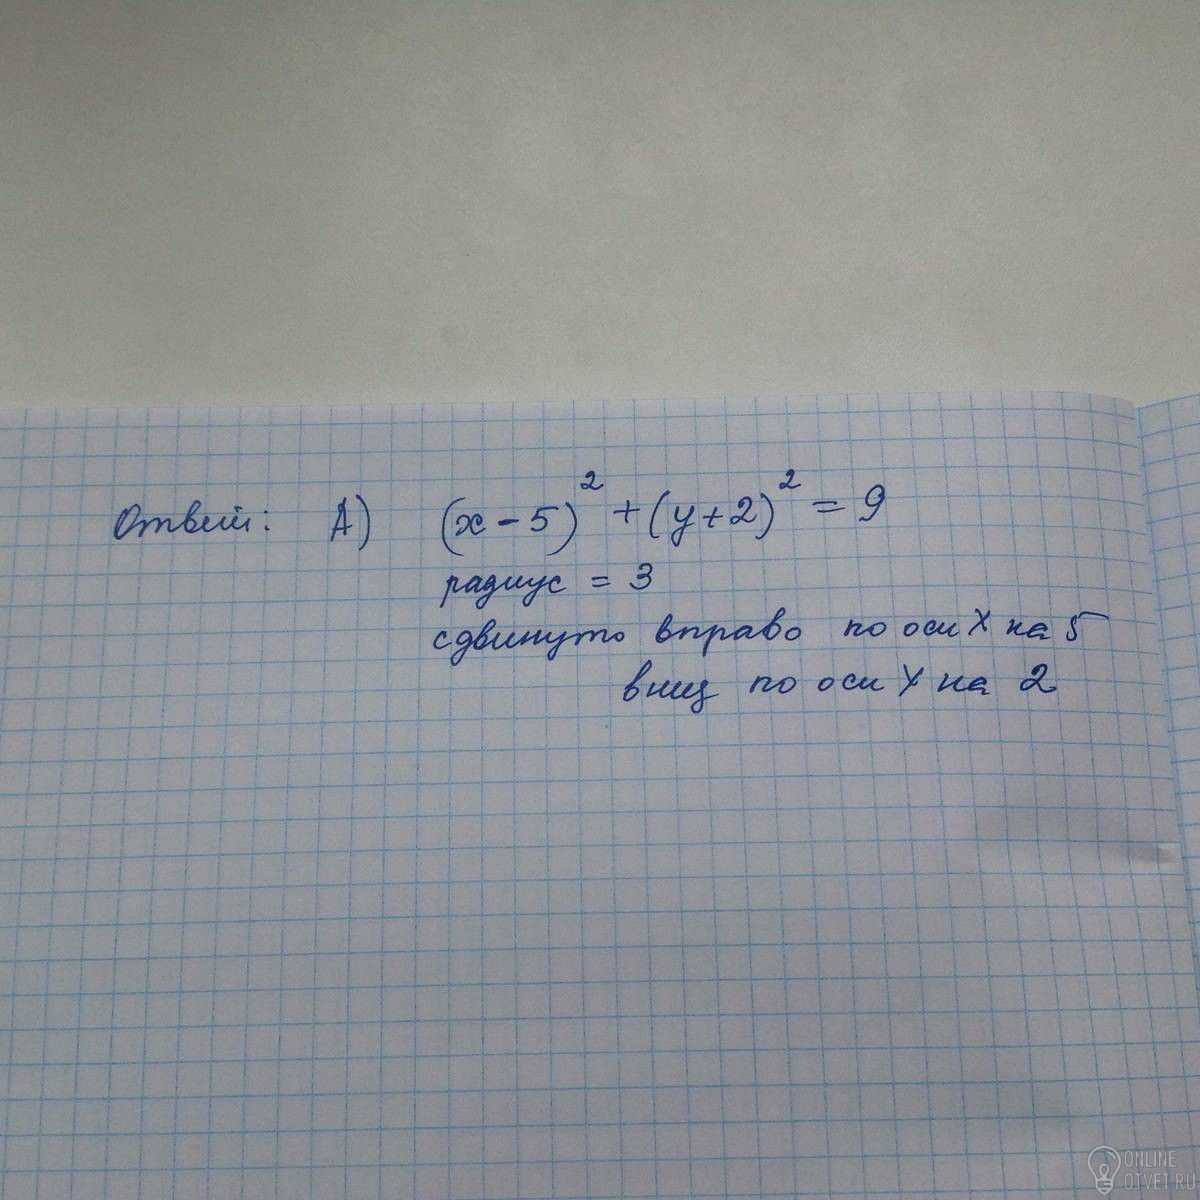 Ответ: А) (x - 5)² + (y + 2)² = 9
радиус = 3
сдвинуто вправо по оси X на 5
вниз по оси Y на 2
ONLINE
OTVET.RU